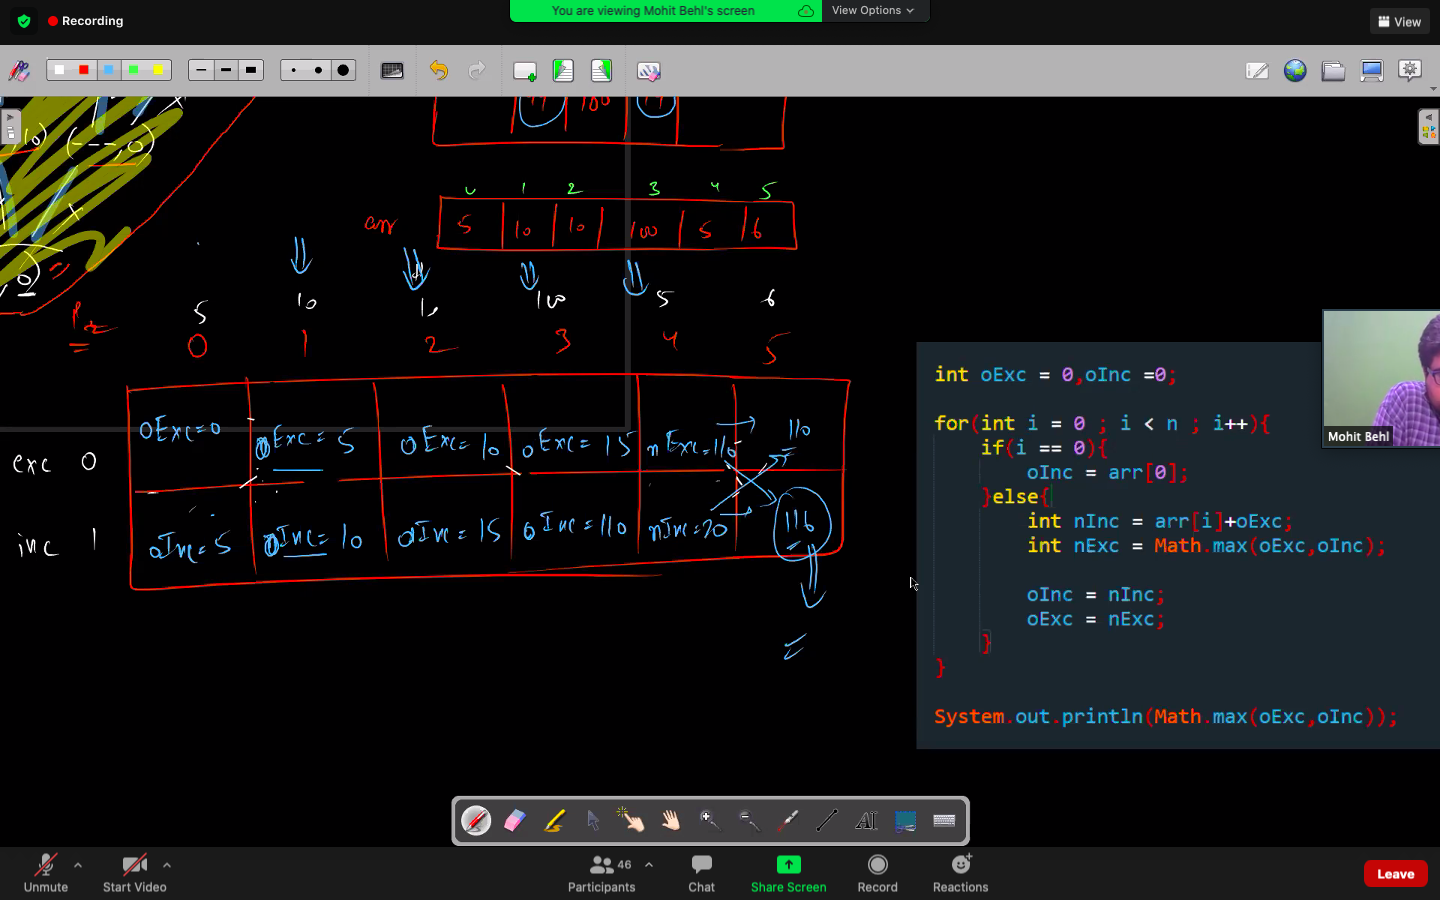 Recording
You are viewing Mohit Behl's screen
View Options
View
10) (---,0)
100
0 1 2 3 4 5
arr 5 10 10 100 5 6
0
5 10 10 100 5 6
0 1 2 3 4 5
oExc=0 oExc= 5 oExc= 10 oExc= 15 nExc=110 110
exc 0
inc 1 oInc=5 oInc= 10 oInc= 15 oInc=110 nInc=20 116
int oExc = 0,oInc =0;
for(int i = 0 ; i < n ; i++){
if(i == 0){
oInc = arr[0];
}else{
int nInc = arr[i]+oExc;
int nExc = Math.max(oExc,oInc);
oInc = nInc;
oExc = nExc;
}
}
System.out.println(Math.max(oExc,oInc));
Mohit Behl
AI
Unmute
Start Video
46
Participants
Chat
Share Screen
Record
Reactions
Leave